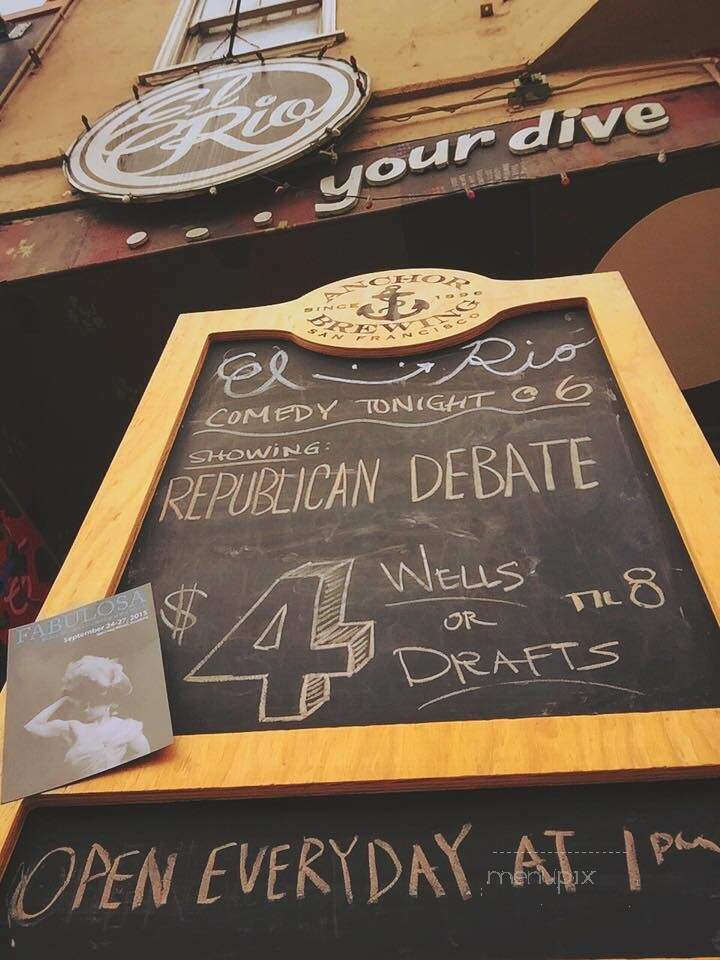 El Rio
... your dive
ANCHOR
SINCE 1896
BREWING
SAN FRANCISCO
El Rio
COMEDY TONIGHT @ 6
SHOWING:
REPUBLICAN DEBATE
$4 WELLS
OR
DRAFTS
TIL 8
FABULOSA
September 24-27, 2015
OPEN EVERYDAY AT 1pm
menupix